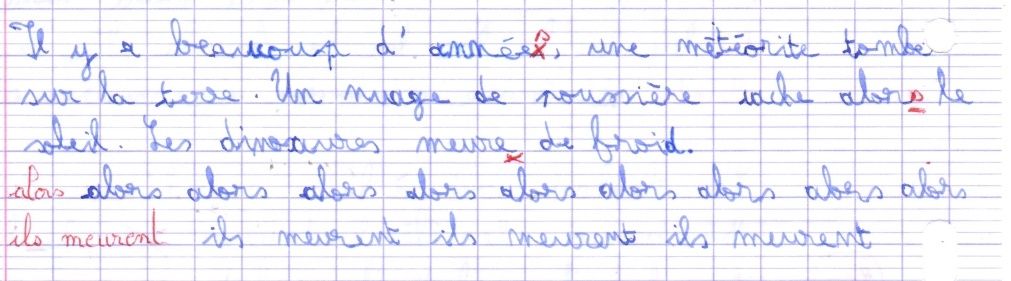 Il y a beaucoup d'années, une météorite tombe
sur la terre. Un nuage de poussière cache alors le
soleil. Les dinosaures meure de froid.
alors alors alors alors alors alors alors alors alors alors
ils meurent ils meurent ils meurent ils meurent